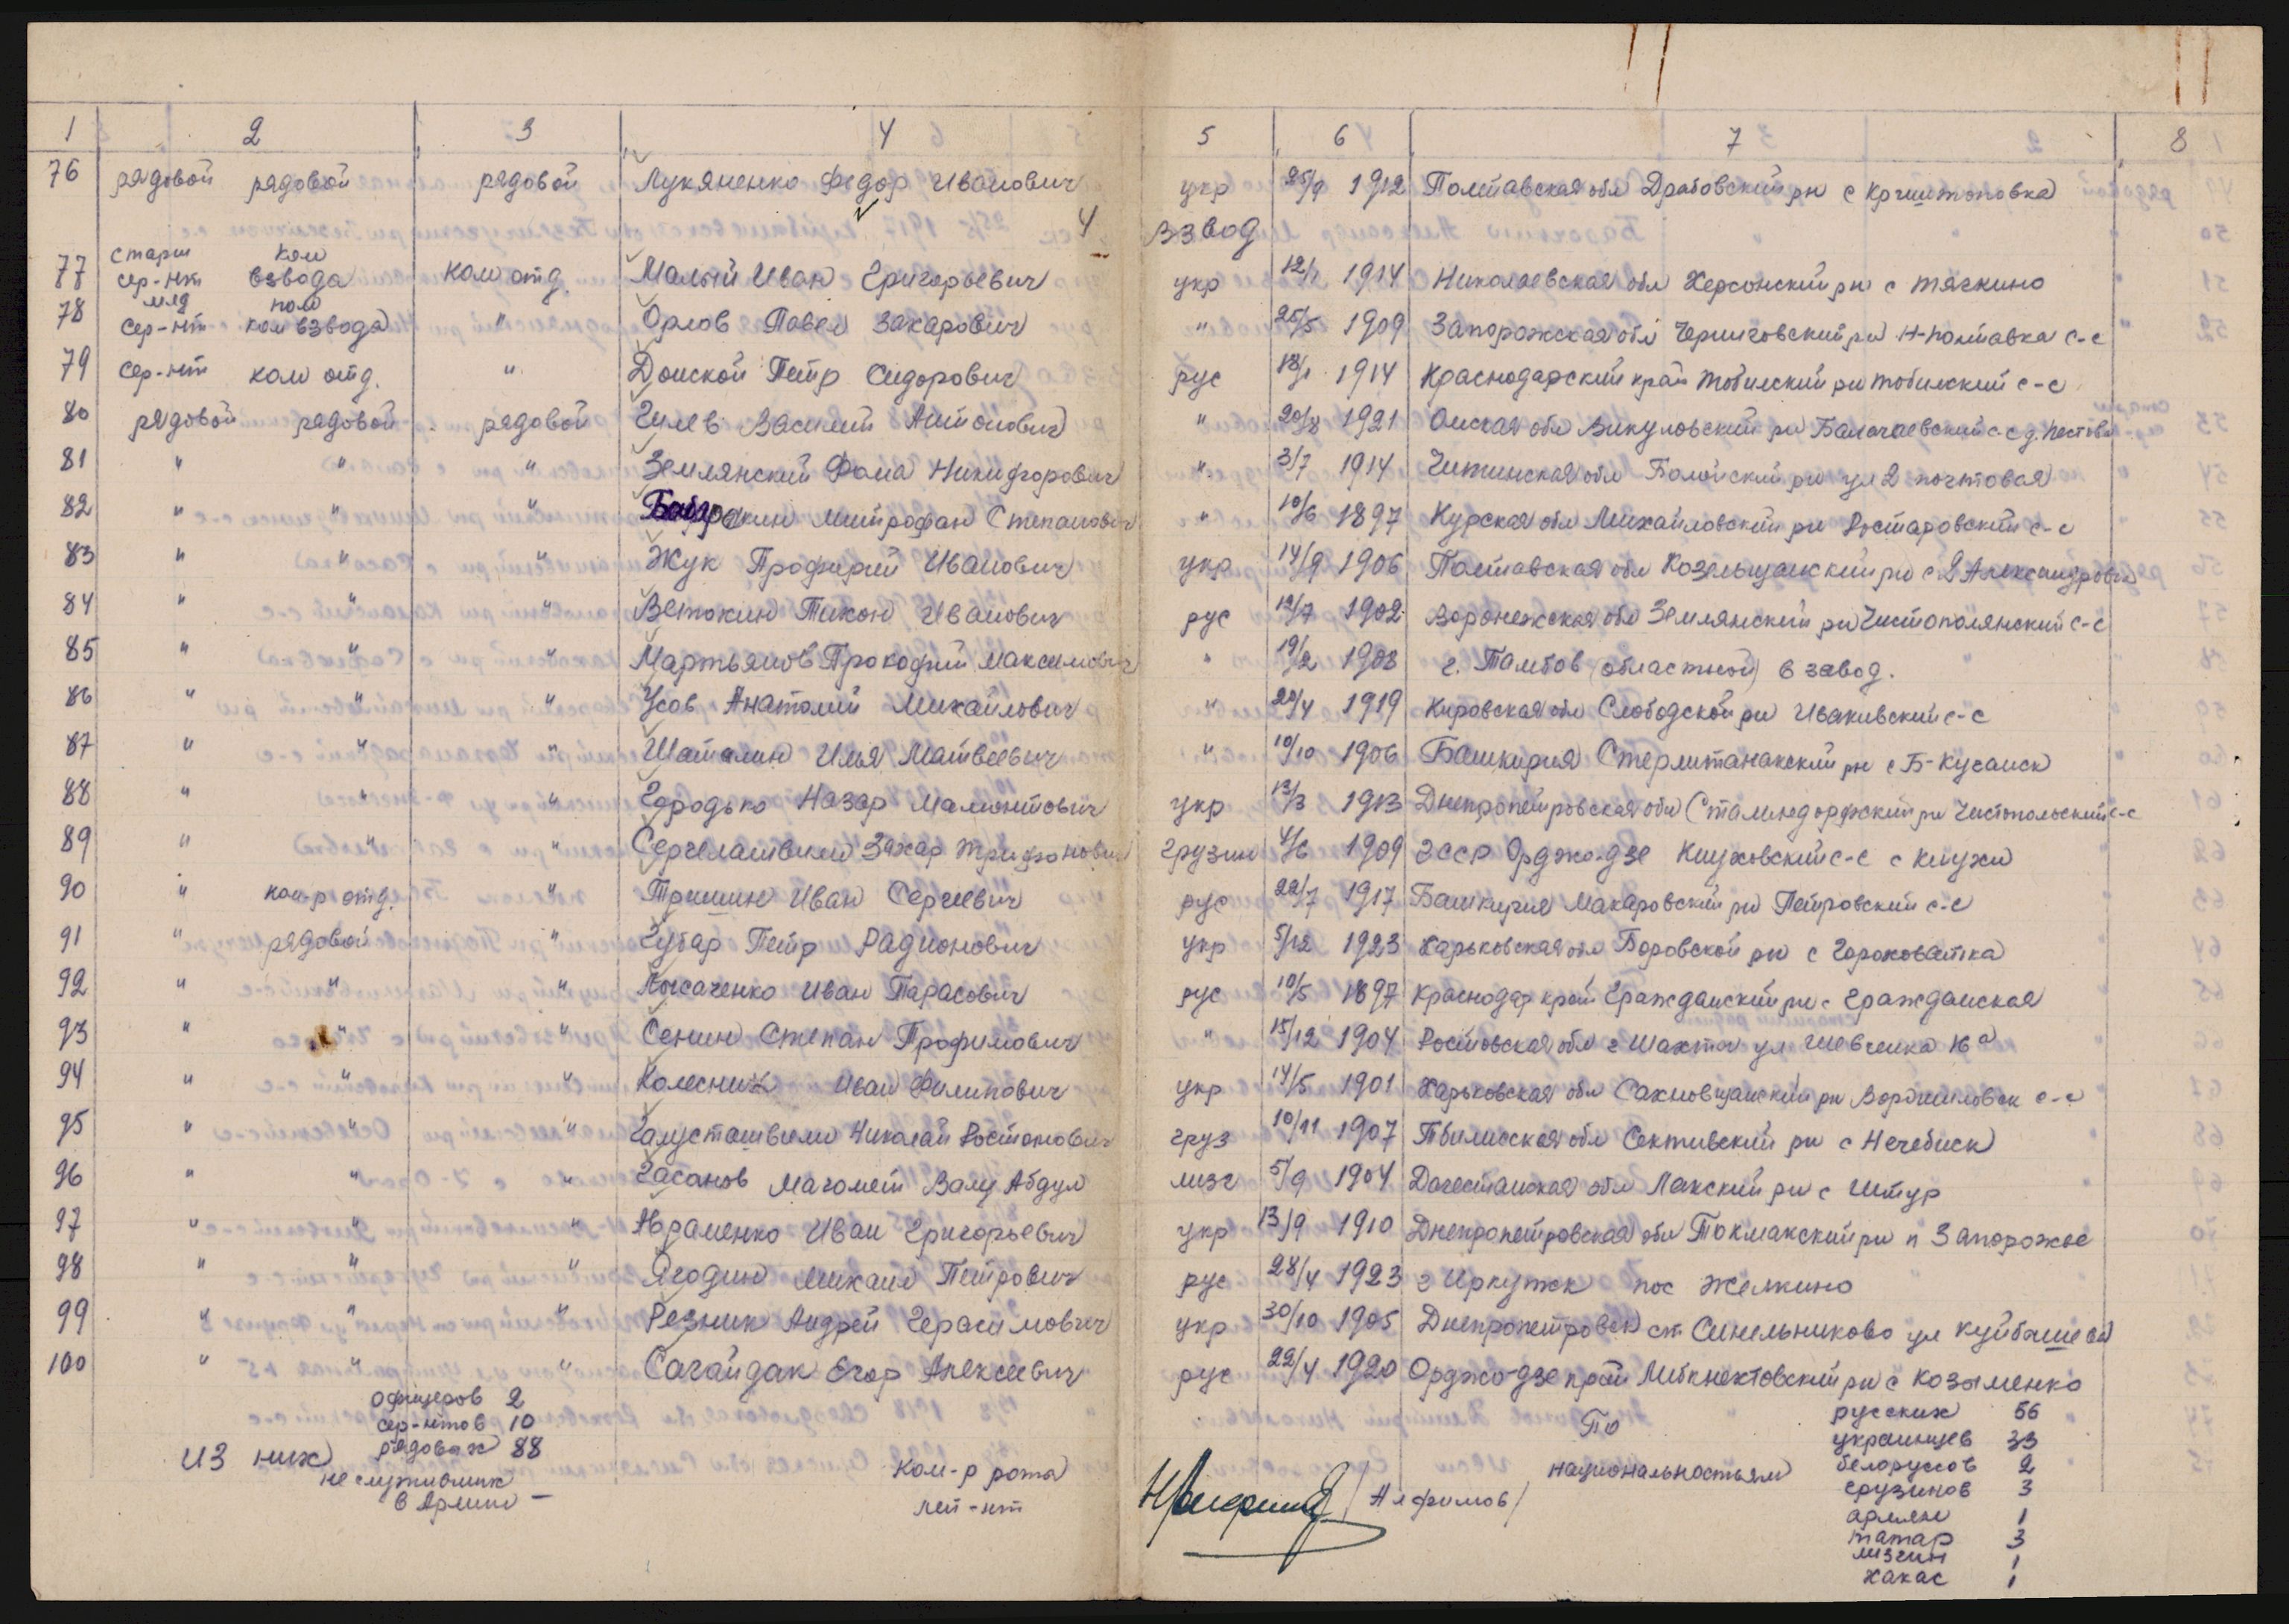 1 2 3 4 5 6 7 8
76 рядовой рядовой рядовой Лукяненко Федор Иванович укр 25/9 1912 Полтавская обл Драбовский рн с Криштоповка
4 взвод
77 старш сер-нт ком взвода ком отд. Малый Иван Григорьевич укр 12/1 1914 Николаевская обл Херсонский рн с Тягкино
78 млд сер-нт пом ком взвода " Орлов Павел Захарович " 25/5 1909 Запорожская обл Черниговский рн Н-Полтавка с-с
79 сер-нт ком отд. " Донской Петр Сидорович рус 18/1 1914 Краснодарский край Тобилский рн Тобилский с-с
80 рядовой рядовой рядовой Гулев Василий Антонович " 20/8 1921 Омская обл Викуловский рн Балагаевский с-с д. Пестова
81 " " " Землянский Фома Никифорович " 3/7 1914 Читинская обл Болойский рн ул 2 почтовая
82 " " " Митрофан Степанович " 10/6 1897 Курская обл Михайловский рн Ростаровский с-с
83 " " " Жук Профирий Иванович укр 14/9 1906 Полтавская обл Козельщанский рн с 2 Александровка
84 " " " Ветокин Тихон Иванович рус 12/7 1902 Воронежская обл Землянский рн Чистополянский с-с
85 " " " Мартьянов Прокофий Максимович " 19/2 1908 г. Тамбов (областной) в завод.
86 " " " Усов Анатолий Михайлович " 20/4 1919 Кировская обл Слободской рн Ивакивский с-с
87 " " " Шаталин Илья Матвеевич " 10/10 1906 Башкирия Стерлитамакский рн с Б-Куганск
88 " " " Городько Назар Мамонтович укр 13/3 1913 Днепропетровская обл Сталиндорфский рн Чистопольский с-с
89 " " " Сергелашвили Захар Трифонович грузин 4/6 1909 ГССР Орджо-дзе Клуховский с-с с Клухи
90 " ком-р отд. " Тришин Иван Сергеевич рус 22/7 1917 Башкирия Макаровский рн Петровский с-с
91 " рядовой " Губар Петр Радионович укр 5/12 1923 Харьковская обл Боровской рн с Гороховатка
92 " " " Лысаченко Иван Тарасович рус 10/5 1897 Краснодар край Гражданский рн с Гражданская
93 " " " Сенин Степан Трофимович " 15/12 1904 Ростовская обл г Шахты ул Шевченка 16а
94 " " " Колесник Иван Филипович укр 14/5 1901 Харьковская обл Сахновщанский рн Ворошиловск с-с
95 " " " Галусташвили Николай Ростомович груз 10/11 1907 Тбилисская обл Сективский рн с Нечебиск
96 " " " Гасанов Магомет Валу Абдул лизг 5/9 1904 Дагестанская обл Лакский рн с Штур
97 " " " Авраменко Иван Григорьевич укр 13/9 1910 Днепропетровская обл Токмакский рн п Запорожье
98 " " " Ягодин Михаил Петрович рус 28/4 1923 г Иркутск пос Желкино
99 " " " Резник Андрей Герасимович укр 30/10 1905 Днепропетровск ст Синельниково ул Куйбашева
100 " " " Сагайдак Егор Алексеевич рус 22/4 1920 Орджо-дзе край Либкнехтовский рн с Козьменко
офицеров 2
сер-нтов 10
из них рядовых 88
не служивших
в Армии —
ком-р роты
лей-нт /Алфимов/
По
национальностям
русских 56
украинцев 33
белоруссов 2
грузинов 3
армян 1
татар 3
лизгин 1
хакас 1